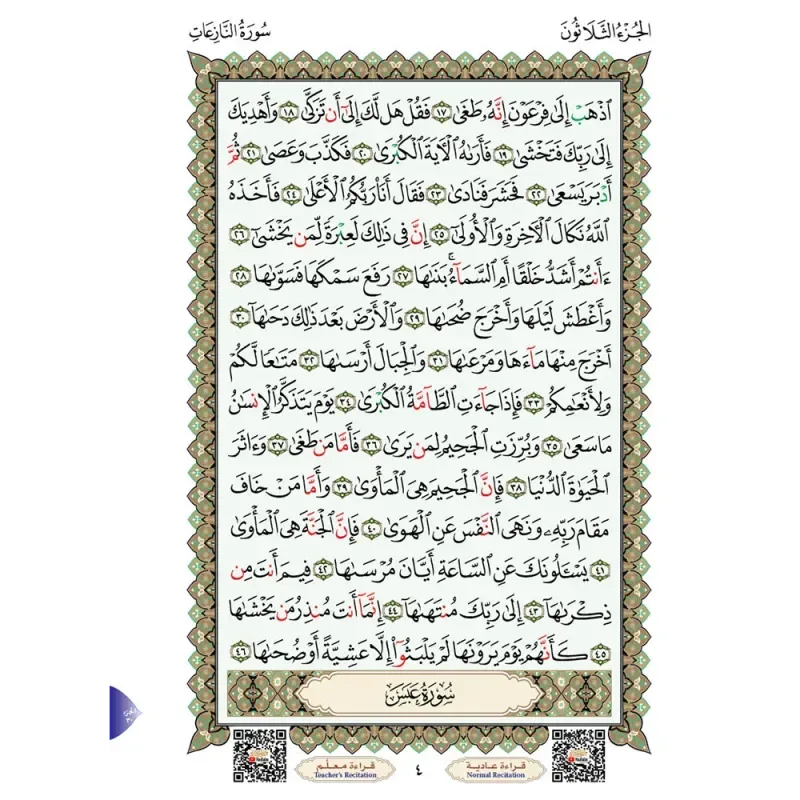 الجزء الثلاثون
سورة النازعات
ٱذۡهَبۡ إِلَىٰ فِرۡعَوۡنَ إِنَّهُۥ طَغَىٰ ١٧ فَقُلۡ هَل لَّكَ إِلَىٰٓ أَن تَزَكَّىٰ ١٨ وَأَهۡدِيَكَ
إِلَىٰ رَبِّكَ فَتَخۡشَىٰ ١٩ فَأَرَىٰهُ ٱلۡأٓيَةَ ٱلۡكُبۡرَىٰ ٢٠ فَكَذَّبَ وَعَصَىٰ ٢١ ثُمَّ
أَدۡبَرَ يَسۡعَىٰ ٢٢ فَحَشَرَ فَنَادَىٰ ٢٣ فَقَالَ أَنَا۠ رَبُّكُمُ ٱلۡأَعۡلَىٰ ٢٤ فَأَخَذَهُ
ٱللَّهُ نَكَالَ ٱلۡأٓخِرَةِ وَٱلۡأُولَىٰٓ ٢٥ إِنَّ فِي ذَٰلِكَ لَعِبۡرَةٗ لِّمَن يَخۡشَىٰٓ ٢٦
ءَأَنتُمۡ أَشَدُّ خَلۡقًا أَمِ ٱلسَّمَآءُۚ بَنَىٰهَا ٢٧ رَفَعَ سَمۡكَهَا فَسَوَّىٰهَا ٢٨
وَأَغۡطَشَ لَيۡلَهَا وَأَخۡرَجَ ضُحَىٰهَا ٢٩ وَٱلۡأَرۡضَ بَعۡدَ ذَٰلِكَ دَحَىٰهَآ ٣٠
أَخۡرَجَ مِنۡهَا مَآءَهَا وَمَرۡعَىٰهَا ٣١ وَٱلۡجِبَالَ أَرۡسَىٰهَا ٣٢ مَتَٰعٗا لَّكُمۡ
وَلِأَنۡعَٰمِكُمۡ ٣٣ فَإِذَا جَآءَتِ ٱلطَّآمَّةُ ٱلۡكُبۡرَىٰ ٣٤ يَوۡمَ يَتَذَكَّرُ ٱلۡإِنسَٰنُ
مَا سَعَىٰ ٣٥ وَبُرِّزَتِ ٱلۡجَحِيمُ لِمَن يَرَىٰ ٣٦ فَأَمَّا مَن طَغَىٰ ٣٧ وَءَاثَرَ
ٱلۡحَيَوٰةَ ٱلدُّنۡيَا ٣٨ فَإِنَّ ٱلۡجَحِيمَ هِيَ ٱلۡمَأۡوَىٰ ٣٩ وَأَمَّا مَنۡ خَافَ
مَقَامَ رَبِّهِۦ وَنَهَى ٱلنَّفۡسَ عَنِ ٱلۡهَوَىٰ ٤٠ فَإِنَّ ٱلۡجَنَّةَ هِيَ ٱلۡمَأۡوَىٰ
٤١ يَسۡـَٔلُونَكَ عَنِ ٱلسَّاعَةِ أَيَّانَ مُرۡسَىٰهَا ٤٢ فِيمَ أَنتَ مِن
ذِكۡرَىٰهَآ ٤٣ إِلَىٰ رَبِّكَ مُنتَهَىٰهَآ ٤٤ إِنَّمَآ أَنتَ مُنذِرُ مَن يَخۡشَىٰهَا
٤٥ كَأَنَّهُمۡ يَوۡمَ يَرَوۡنَهَا لَمۡ يَلۡبَثُوٓاْ إِلَّا عَشِيَّةً أَوۡ ضُحَىٰهَا ٤٦
سُورَةُ عَبَسَ
قراءة معلّم
Teacher's Recitation
٤
قراءة عادية
Normal Recitation